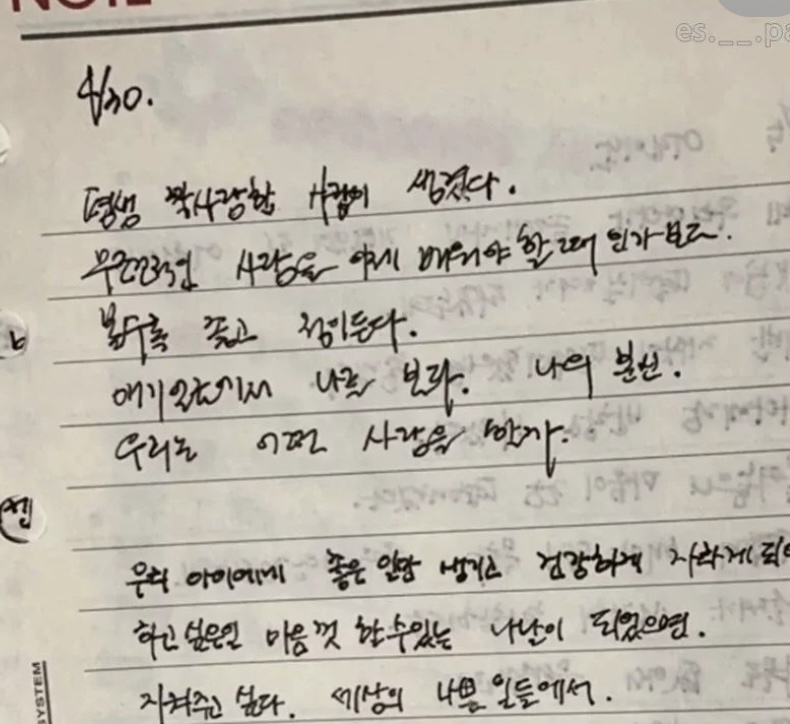 NOTE
es.__.pa
4/30.
평생 짝사랑할 사람이 생겼다.
무조건적인 사랑을 이제 배워야 할 때 인가보다.
볼수록 좋고 정이든다.
얘기 나를 보라. 나의 분신.
우리는 어떤 사랑을 할까.
우리 아이에게 좋은 일만 생기고 건강하게 자라게 되
하고싶은일 마음껏 할수있는 나날이 되었으면.
지켜주고 싶다. 세상의 나쁜 일들에서.
SYSTEM